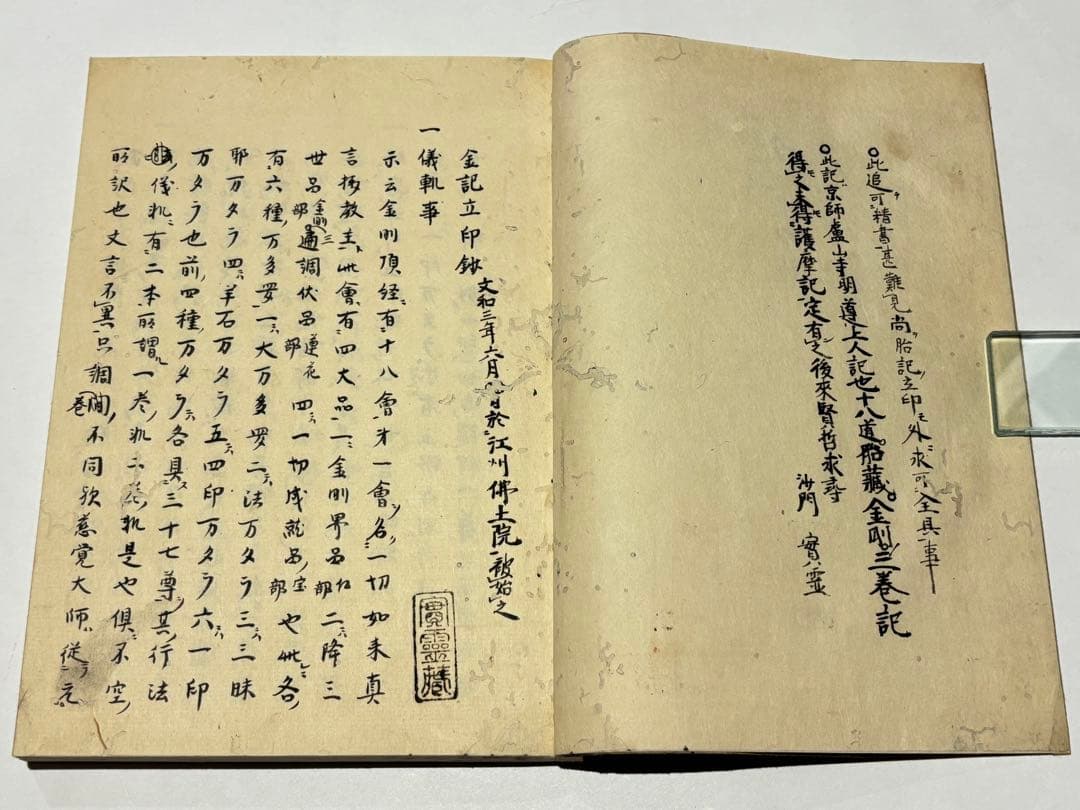 ○此追可精書甚難見尚胎記立印モ外ニ求可全具事
○此記京師盧山寺明導上人記也十八道胎藏金剛三巻記
得之未得護摩記定有之後來賢哲求尋
沙門 實靈
金記立印鈔 文和三年六月 日於江州佛土院被始之
一儀軌事
示云金剛頂経有十八會才一會名一切如来真
言攝教主此會有四大品一金剛界品 二降三
世品金剛部三遍調伏品蓮花部四一切成就品宝部也此各
有六種万多罗一大万多罗二法万タラ三三昧
耶万タラ四羊石万タラ五四印万タラ六一印
万タラ也前四種万タラ各具三十七尊其行法
儀軌有二本所謂一巻軌二巻軌是也倶不空
所訳也文言不異只調巻不同欤慈覚大師従元
實靈藏